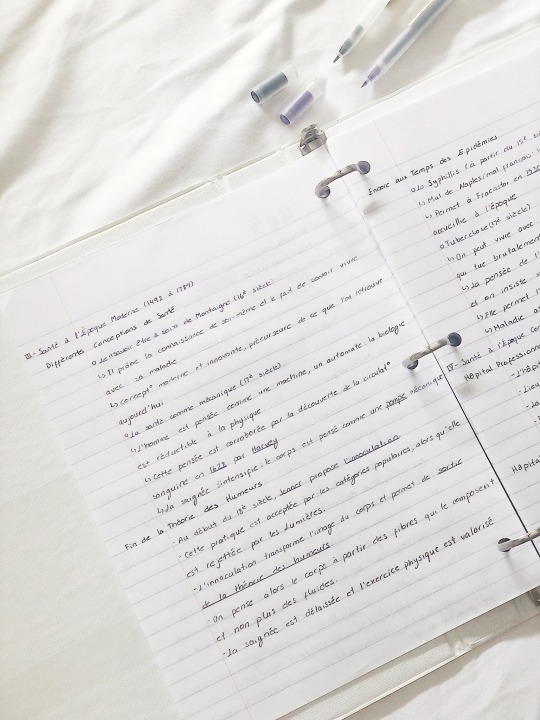 III - Santé à l'Époque Moderne (1492 à 1789)
Différentes Conceptions de Santé
o Le savoir être à soin de Montaigne (16e siècle)
↳ Il prône la connaissance de soi-même et le fait de savoir vivre
avec sa maladie
↳ Concept° moderne et innovante, précurseure de ce que l'on retrouve
aujourd'hui
o La santé comme mécanique (17e siècle)
↳ L'homme est pensée comme une machine, un automate : la biologie
est réductible à la physique
↳ Cette pensée est corroborée par la découverte de la circulat°
sanguine en 1628 par Harvey
↳ La saignée s'intensifie : le corps est pensé comme une pompe mécanique
Fin de la Théorie des Humeurs
- Au début du 18e siècle, propose l'inoculation
- Cette pratique est acceptée par les catégories populaires, alors qu'elle
est rejettée par les Lumières.
- L'innoculation transforme l'image du corps et permet de sortir
de la théorie des humeurs
- On pense alors le corps à partir des fibres qui le composent
et non plus des fluides.
- La saignée est délaissée et l'exercice physique est valorisé
Encore aux Temps des Epidémies
o La Syphillis (à partir du 15e
↳ Mal de Naples/mal francais
↳ Permet à Fracastor en 1530
accueillie à l'époque
o Tuberclose (17e siècle)
↳ On peut vivre avec
qui tue brutalement
↳ La pensée de l'
et on insiste
↳ Elle permet
↳ Maladie
IV - Santé à l'Époque
Hôpital Professionne
- L'hôpi
- Lieu
-
-
Hôpital
- L
- Les